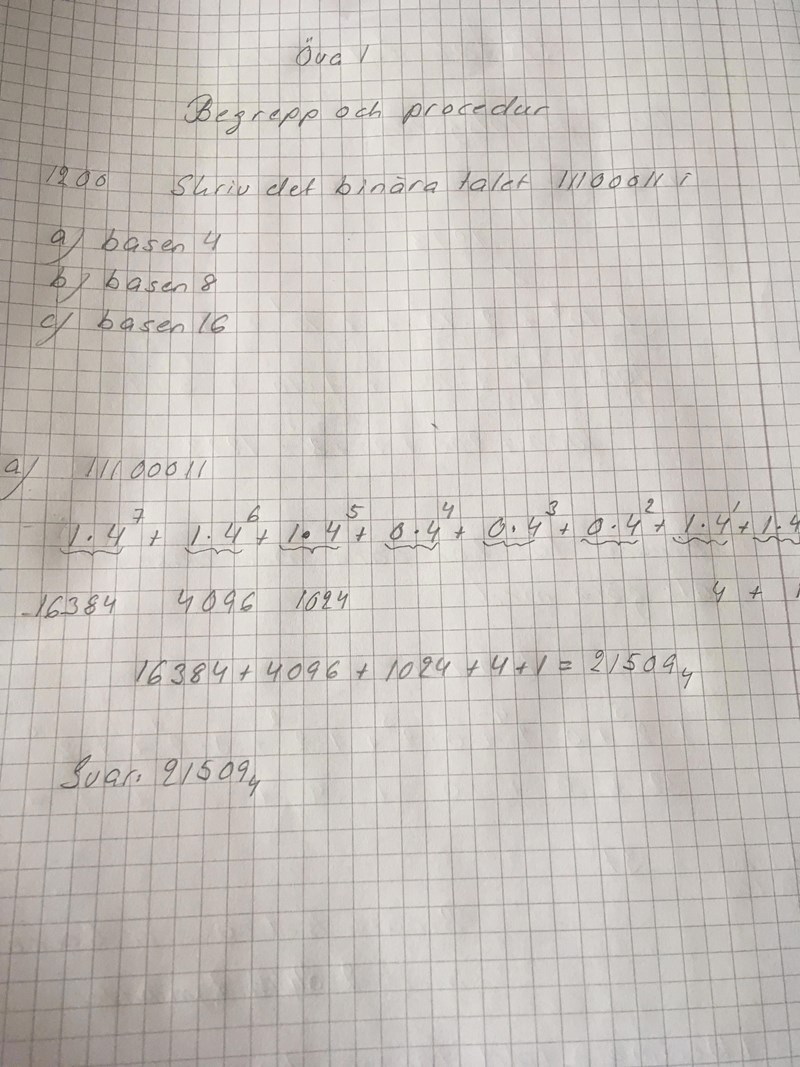 Öva 1
Begrepp och procedur
1200 Skriv det binära talet 11100011 i
a) basen 4
b) basen 8
c) basen 16
a) 11100011
1·4⁷ + 1·4⁶ + 1·4⁵ + 0·4⁴ + 0·4³ + 0·4² + 1·4¹ + 1·4
16384 4096 1024 4 + 1
16384 + 4096 + 1024 + 4 + 1 = 21509₄
Svar: 21509₄